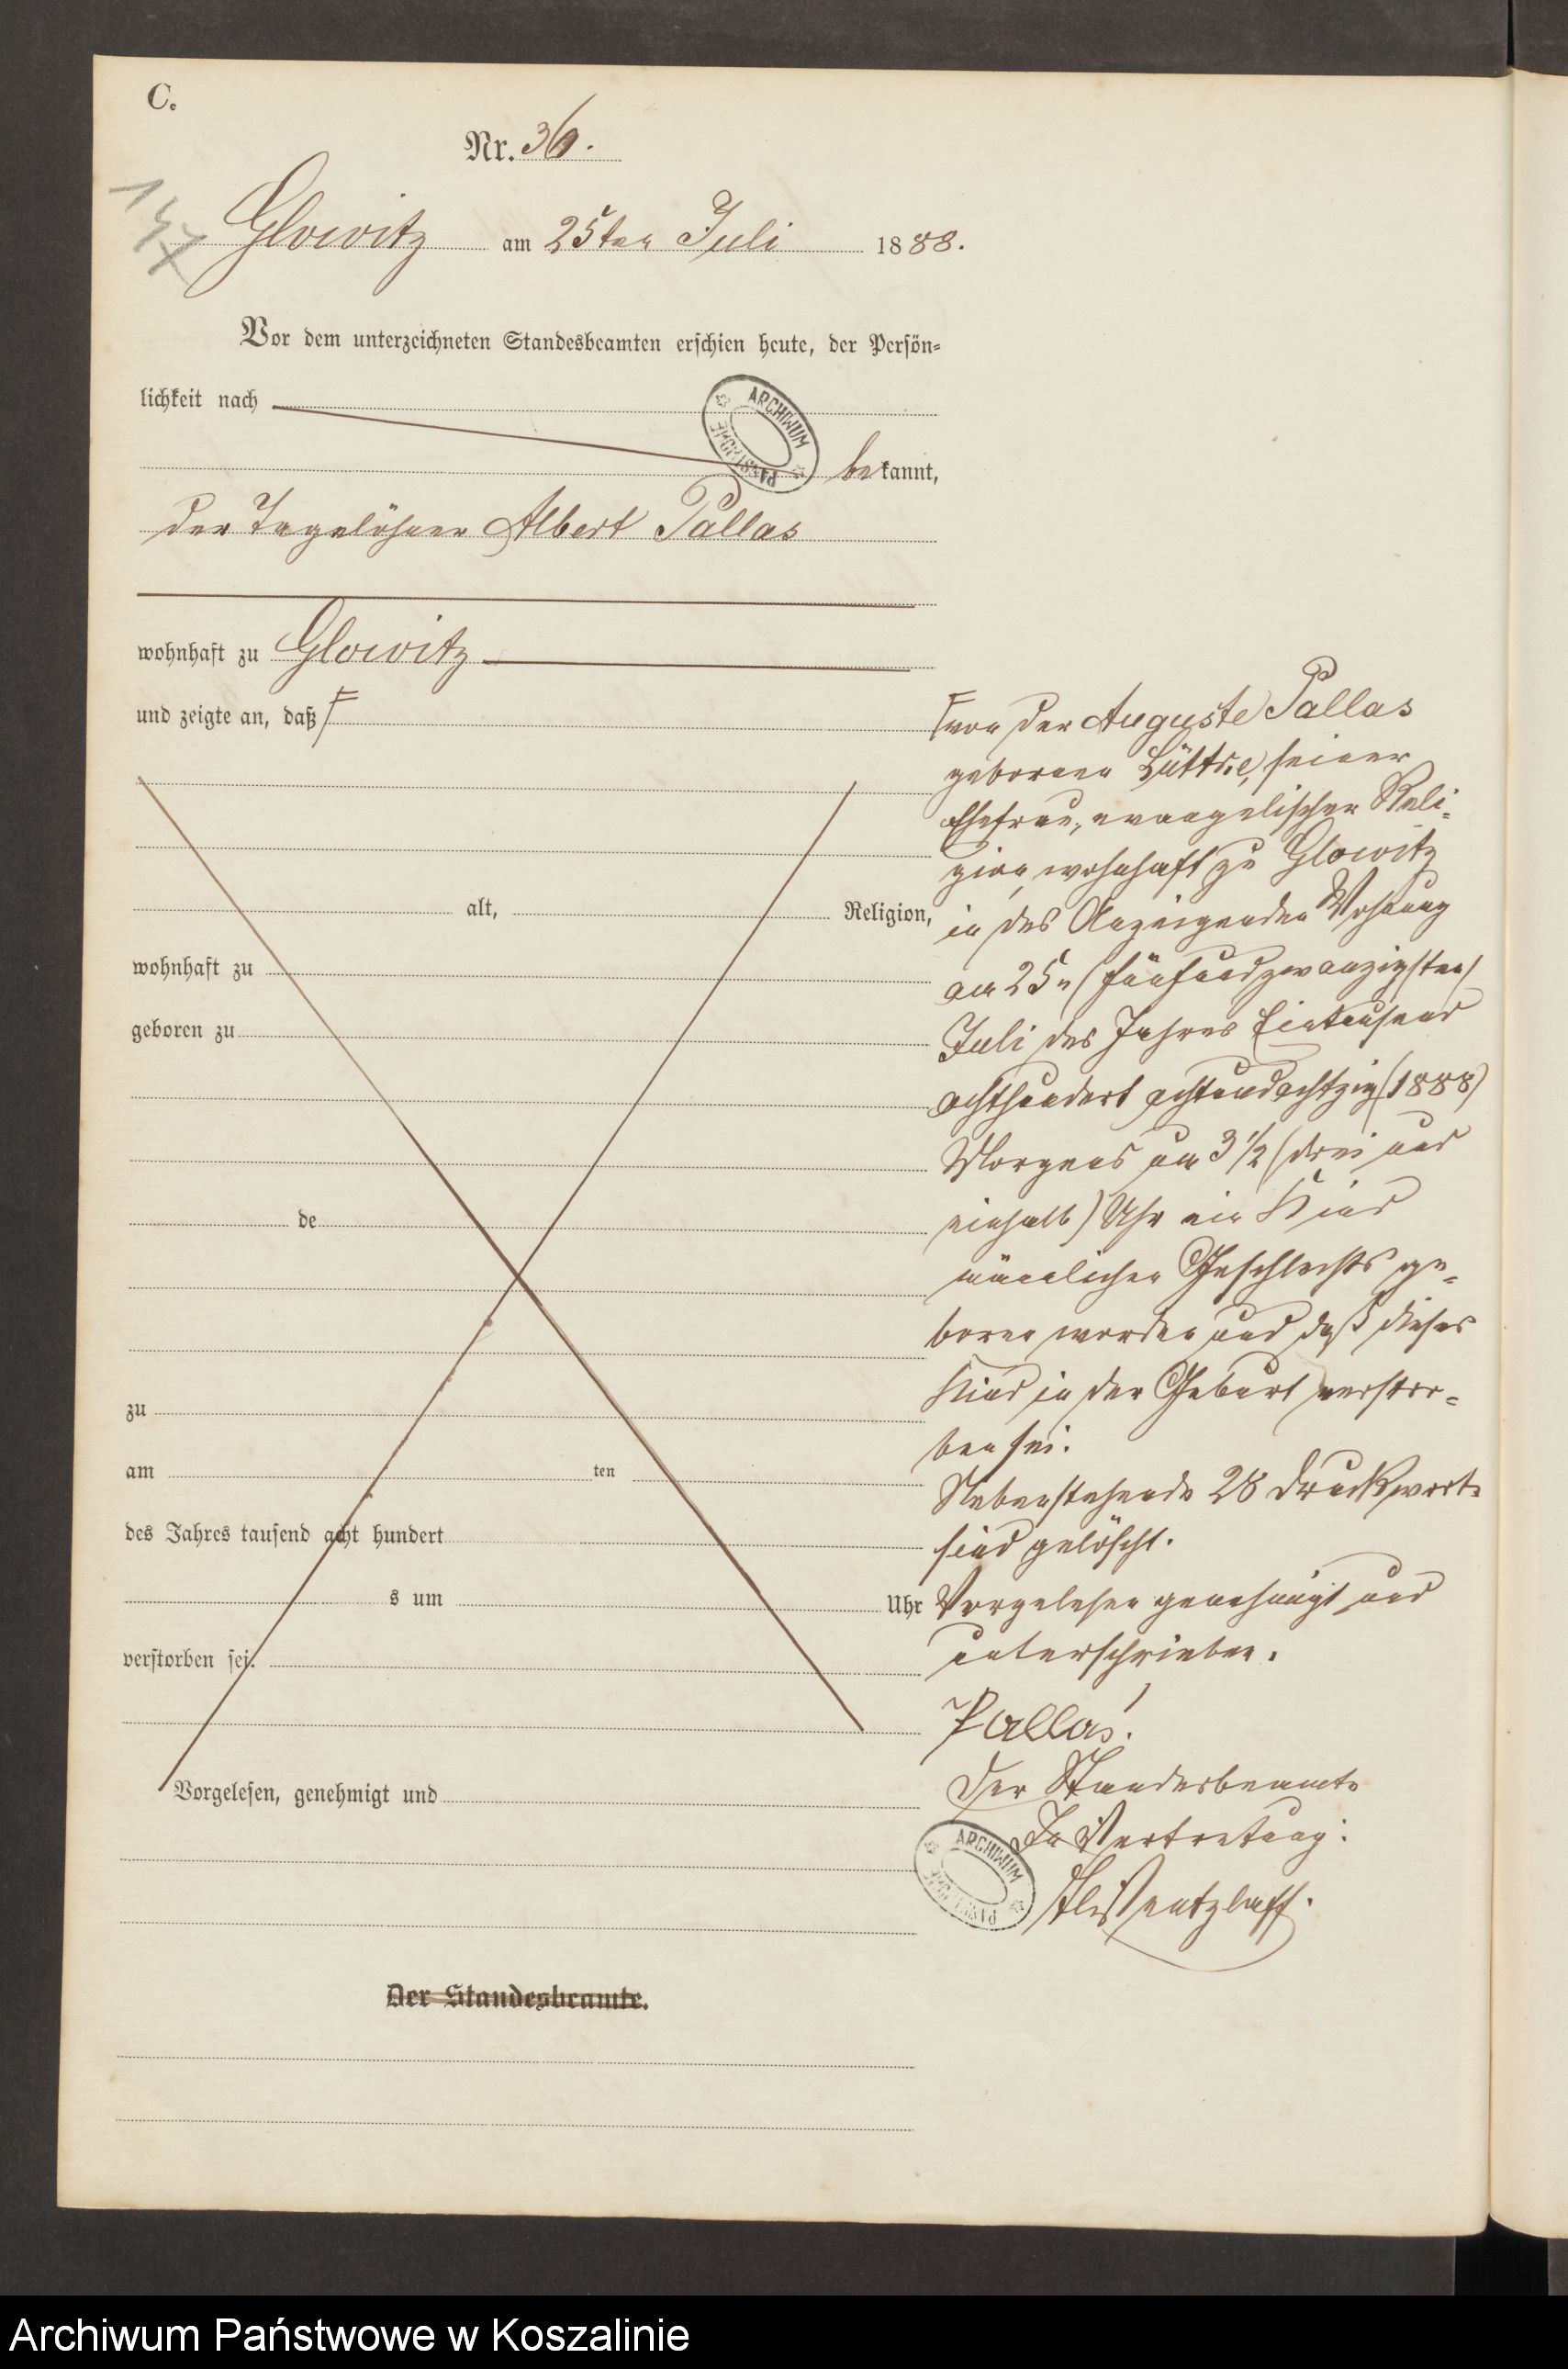 C.
Nr. 36.
147
Glowitz am 25ten Juli 1888.
Vor dem unterzeichneten Standesbeamten erschien heute, der Persön-
lichkeit nach
bekannt,
der Tagelöhner Albert Pallas
wohnhaft zu Glowitz
und zeigte an, daß
von der Auguste Pallas
gebornen seiner
Ehefrau, evangelischer Reli-
gion, wohnhaft zu Glowitz
in des Anzeigenden Wohnung
am 25n (fünfundzwanzigsten)
Juli des Jahres Eintausend
achthundert achtundachtzig (1888)
Morgens um 3 1/2 (drei und
einhalb) Uhr ein Kind
männlichen Geschlechts ge-
boren worden und daß dieses
Kind in der Geburt verstor-
ben sei.
Nebenstehende 28 Druckworte
sind gelöscht.
Vorgelesen genehmigt und
unterschrieben.
Pallas.
Der Standesbeamte
In Vertretung:
alt, Religion,
wohnhaft zu
geboren zu
de
zu
am ten
des Jahres tausend acht hundert
s um Uhr
verstorben sei.
Vorgelesen, genehmigt und
Der Standesbeamte.
ARCHIWUM PAŃSTWOWE
ARCHIWUM PAŃSTWOWE
Archiwum Państwowe w Koszalinie